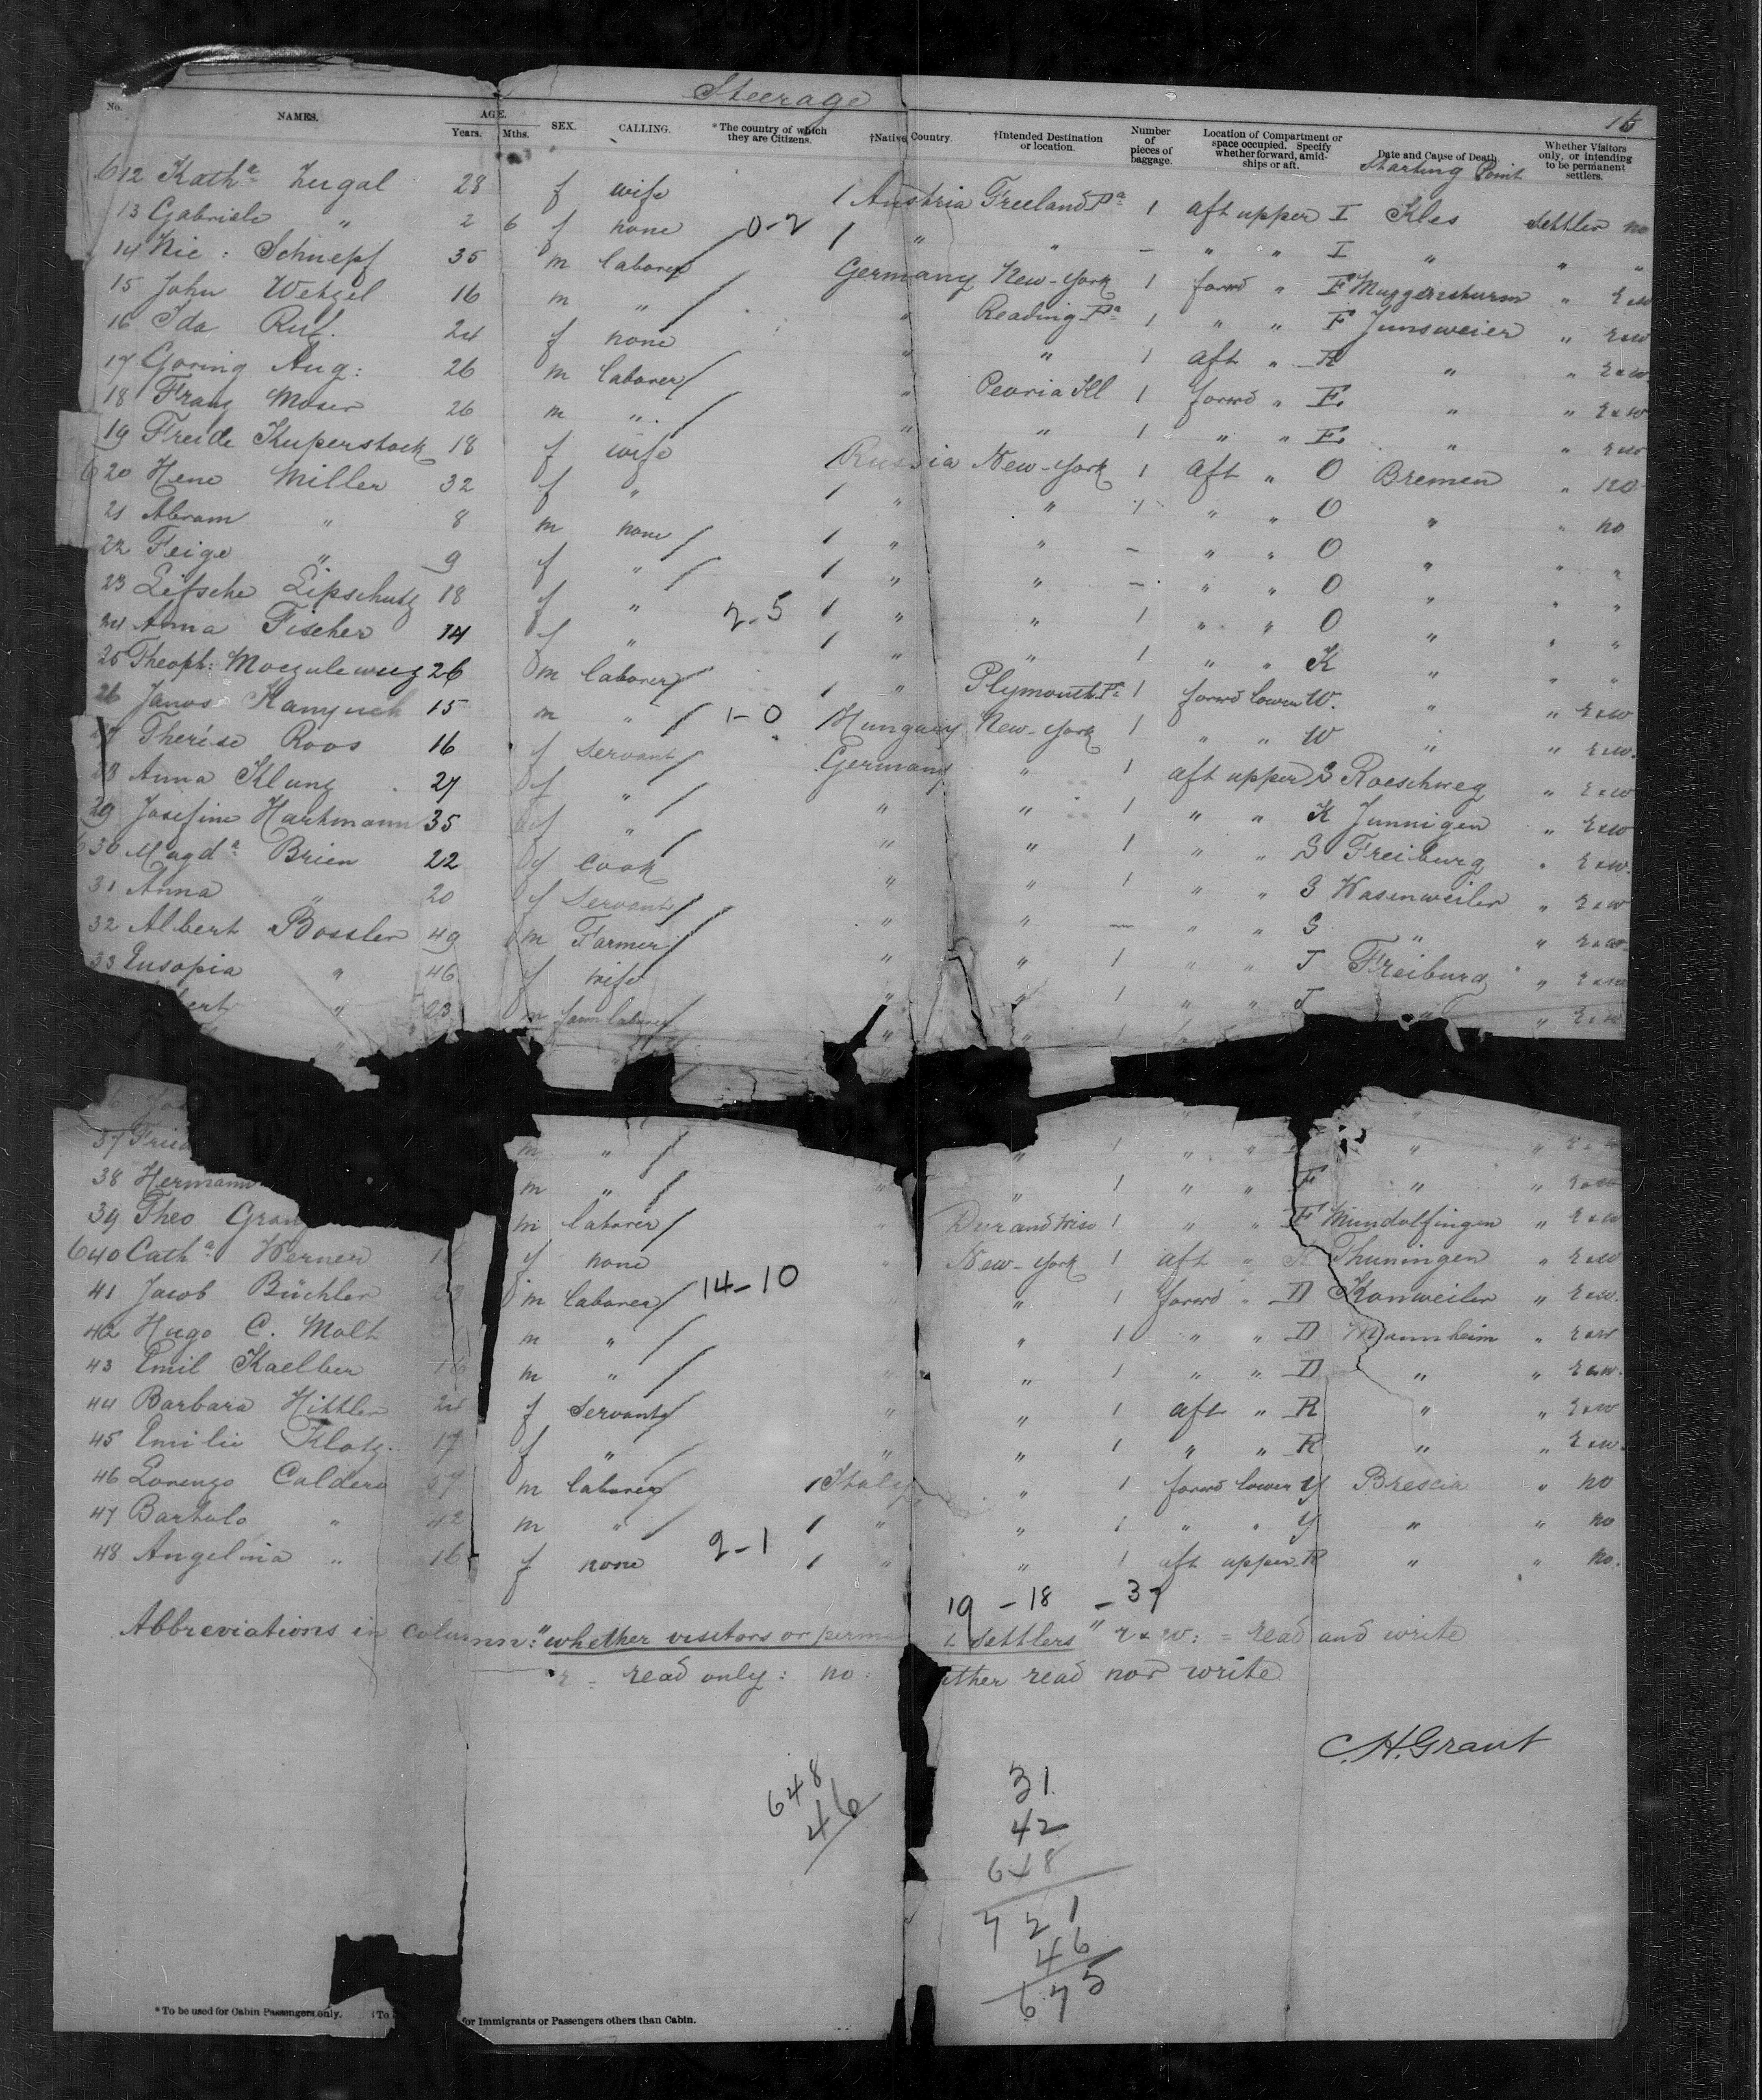 Steerage
15
No. NAMES. AGE. Years. Mths. SEX. CALLING. *The country of which they are Citizens. †Native Country. †Intended Destination or location. Number of pieces of baggage. Location of Compartment or space occupied. Specify whether forward, amidships or aft. Date and Cause of Death. Starting Point Whether Visitors only, or intending to be permanent settlers.
612 Kath^a Zugal 28 f wife 1 Austria Freeland Pa 1 aft upper I Kles Settler no
13 Gabriele " 2 6 f none 0-2 1 " " – " " I " " "
14 Nic: Schnepf 35 m laborer / Germany New-York 1 forwd " F Muggensturm " r&w
15 John Wetzel 16 m " / " Reading Pa 1 " " F Junsweier " r&w
16 Ida Ruf. 24 f none " " 1 aft " R " " r&w.
17 Goring Aug: 26 m laborer / " Peoria Ill 1 forwd " F. " " r&w
18 Franz Moser 26 m " / " " 1 " " F. " " r&w
19 Freide Kuperstock 18 f wife 1 Russia New-York 1 aft " O Bremen " no.
620 Hene Miller 32 f " 1 " " 1 " " O " " no
21 Abram " 8 m none / 1 " " – " " O " " "
22 Feige " 9 f " / 1 " " – " " O " " "
23 Lifsche Lipschutz 18 f " 2-5 1 " " 1 " " O " " "
24 Anna Fischer 14 f " 1 " " 1 " " K " " "
25 Theoph: 26 m laborer / 1 " Plymouth Pa 1 forwd lower W. " " r&w
26 Janos 15 m " / 1-0 Hungary New-York 1 " " W " " r&w.
27 Therése Roos 16 f Servant / Germany " 1 aft upper S Roeschweg " r&w
28 Anna Klung 27 f " / " " 1 " " K Junnigen " r&w
29 Josefine Hartmann 35 f " / " " 1 " " S Freiburg " r&w.
630 Magd^a Brien 22 f Cook " " 1 " " S Wasenweiler " r&w
31 Anna " 20 f Servant / " " — " " S " " r&w
32 Albert Bossler 49 m Farmer / " " 1 " " T Freiburg " r&w
33 Eusopia " 46 f wife " " 1 " " T " " r&w
bert " 23 m farm laborer / " " 1
37 Fried m " / " 1 " " " "
38 Hermann m " / " " 1 " " F " " r&w
39 Theo Gran m laborer / " Durand Wisc 1 " " F Mundolfingen " r&w
640 Cath^a Werner f none " New-York 1 aft " R Thuningen " r&w
41 Jacob Büchler m laborer / 14-10 " 1 forwd " D Konweiler " r&w.
42 Hugo C. Molt m " / " 1 " " D Mannheim " r&w
43 Emil Kaelber 16 m " / " " 1 " " D " " r&w.
44 Barbara Hittler 24 f Servant / " " 1 aft " R " " r&w
45 Emilie Klotz. 17 f " / " " 1 " " R " " r&w.
46 Lorenzo Caldera 37 m laborer / 1 Italy " 1 forwd lower Y Brescia " no
47 Bartolo " 42 m " / 1 " " 1 " " Y " " no
48 Angelina " 16 f none 2-1 1 " " 1 aft upper R " " no.
19 - 18 - 37
Abbreviations in Column: "whether visitors or perma t settlers" r&w: = read and write
r = read only: no: ither read nor write
C.H.Grant
648
46
31
42
648
721
46
675
*To be used for Cabin Passengers only. †To for Immigrants or Passengers others than Cabin.